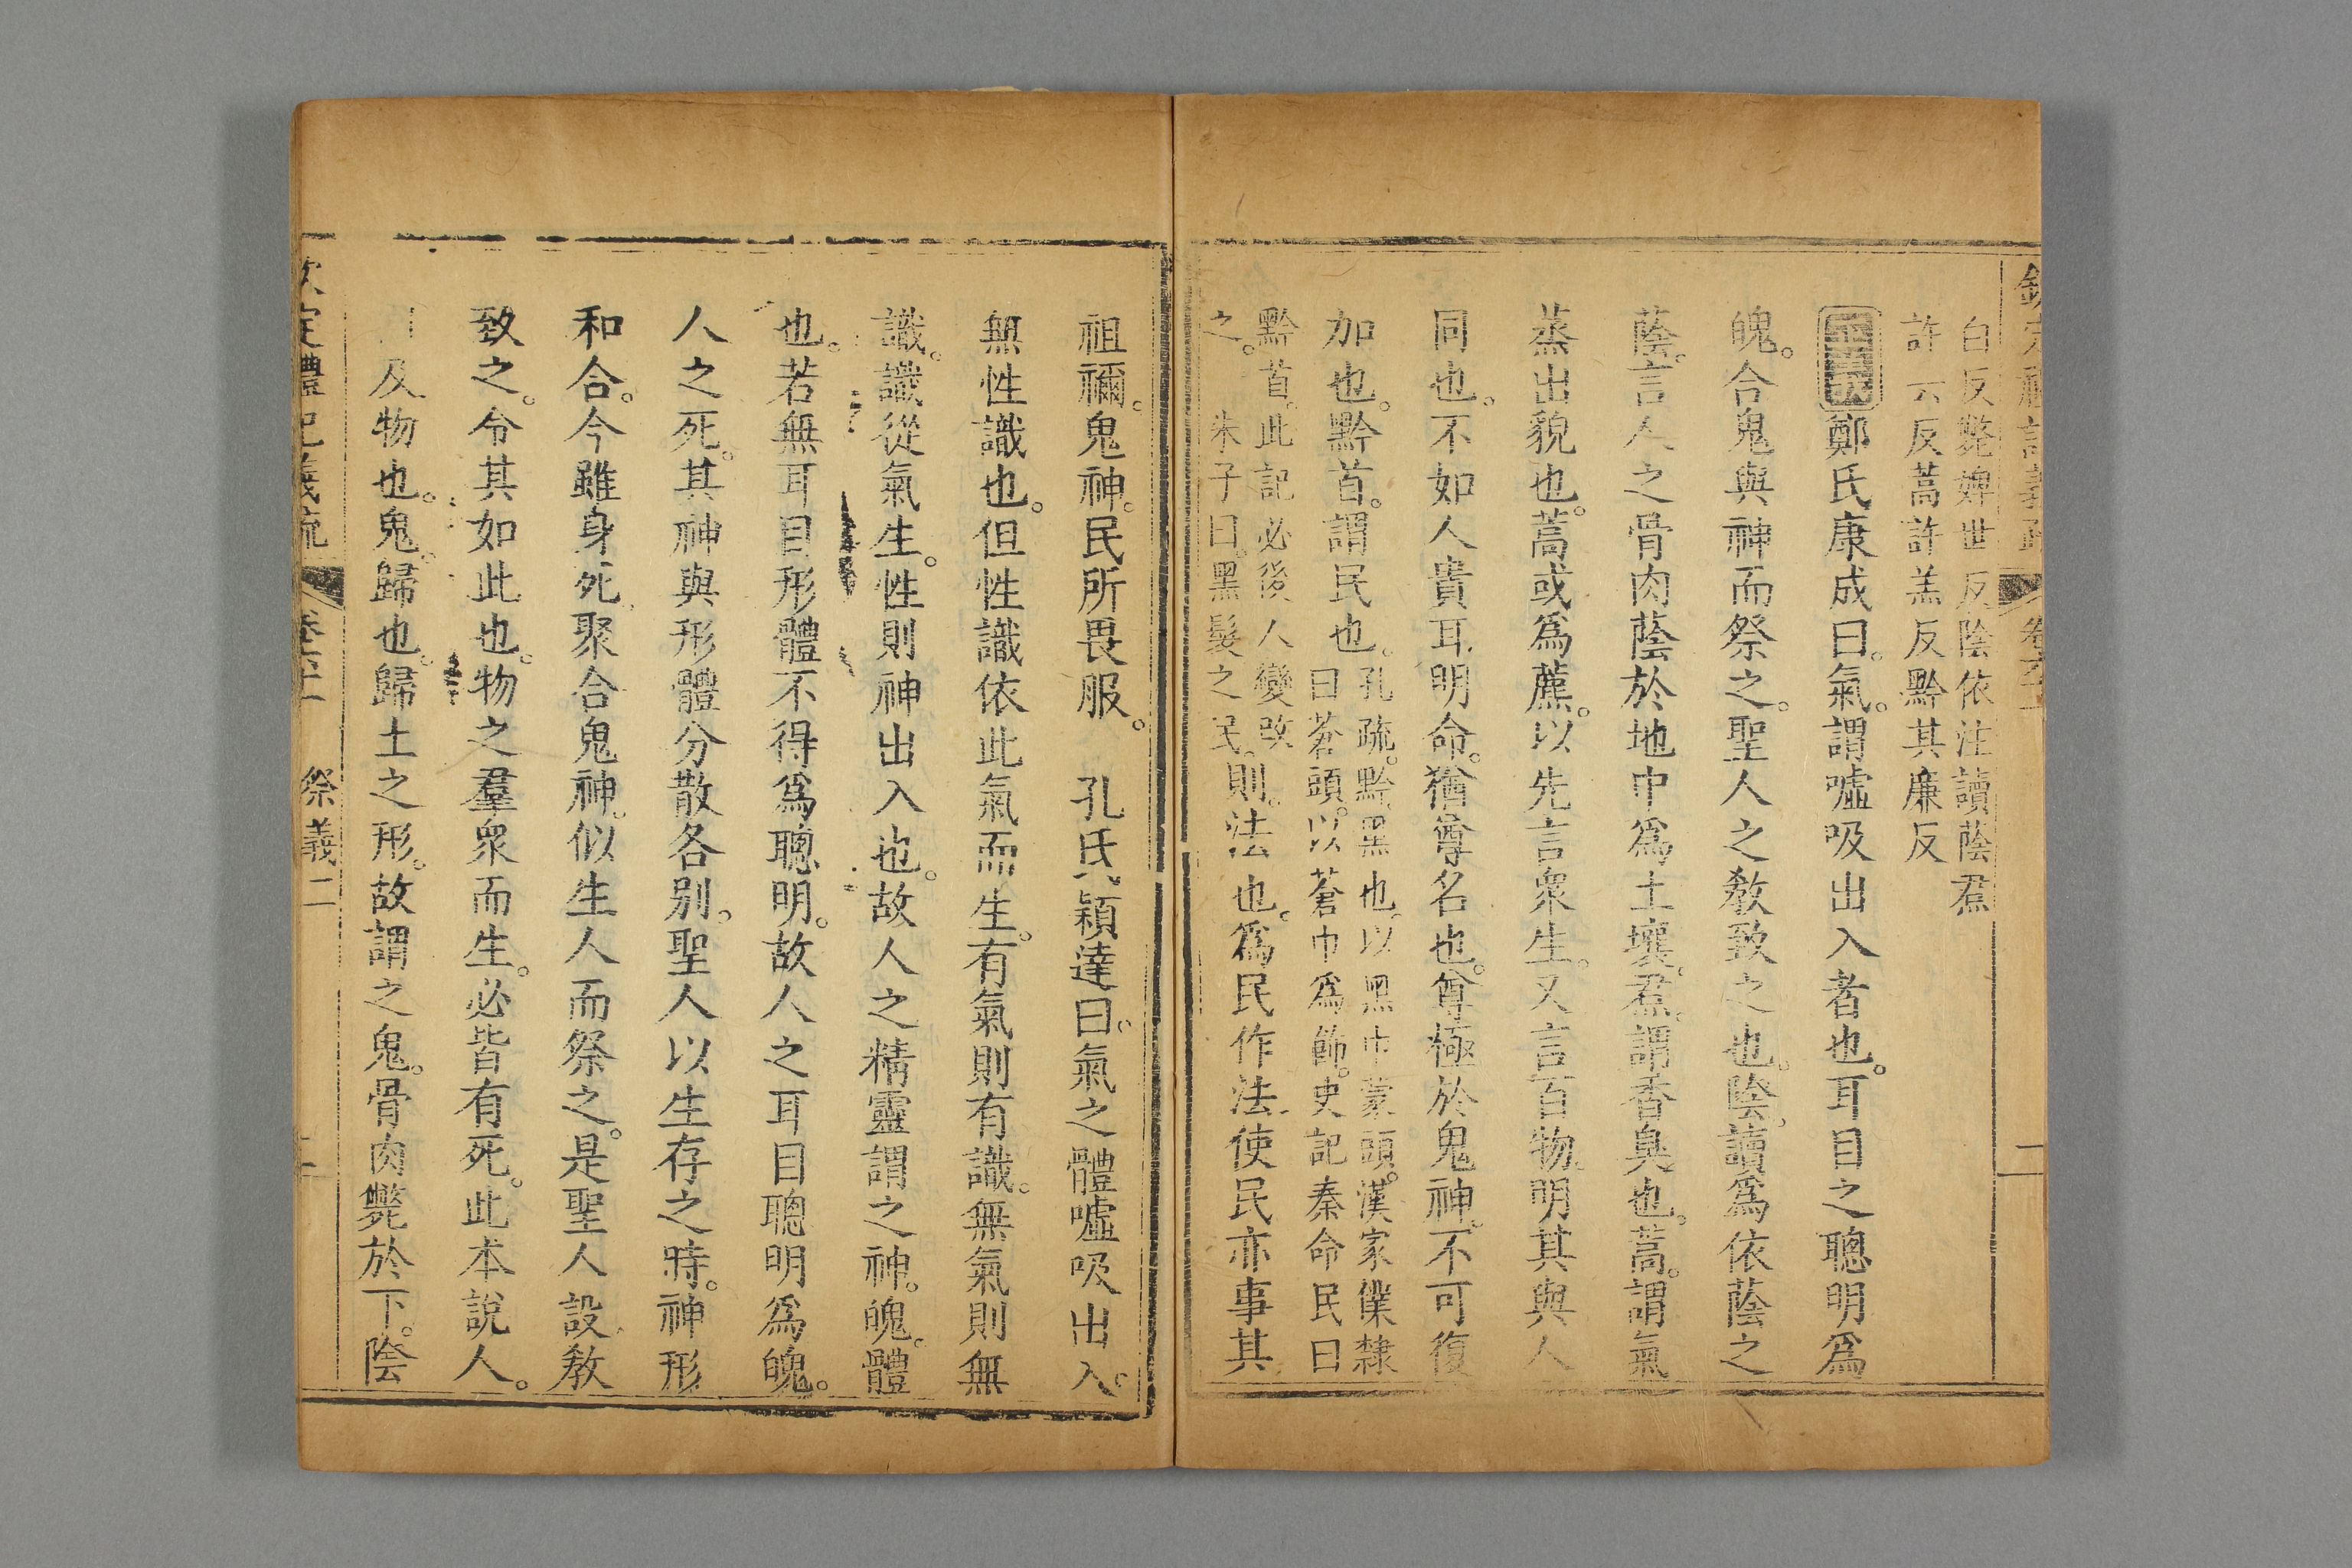 欽定禮記義疏 卷六十一
白反斃婢世反陰依注讀蔭焄
許云反蒿許羔反黔其廉反
正義鄭氏康成曰。氣。謂噓吸出入者也。耳目之聰明爲
魄。合鬼與神而祭之。聖人之敎致之也。陰。讀爲依蔭之
蔭。言人之骨肉蔭於地中爲土壤。焄。謂香臭也。蒿。謂氣
蒸出貌也。蒿或爲藨。以先言衆生。又言百物。明其與人
同也。不如人貴耳。明命。猶尊名也。尊極於鬼神。不可復
加也。黔首。謂民也。孔疏。黔。黑也。以黑巾蒙頭。漢家僕隸
曰蒼頭。以蒼巾爲飾。史記秦命民曰
黔首。此記必後人變改
之。 朱子曰。黑髮之民。則。法也。爲民作法。使民亦事其
祖禰。鬼神。民所畏服。 孔氏穎達曰。氣之體噓吸出入。
無性識也。但性識依此氣而生。有氣則有識。無氣則無
識。識從氣生。性則神出入也。故人之精靈謂之神。魄。體
也。若無耳目形體不得爲聰明。故人之耳目聰明爲魄。
人之死。其神與形體分散各别。聖人以生存之時。神形
和合。今雖身死。聚合鬼神。似生人而祭之。是聖人設敎
致之。令其如此也。物之羣衆而生。必皆有死。此本說人。
及物也。鬼。歸也。歸土之形。故謂之鬼。骨肉斃於下。陰
欽定禮記義疏 卷六十一 祭義二